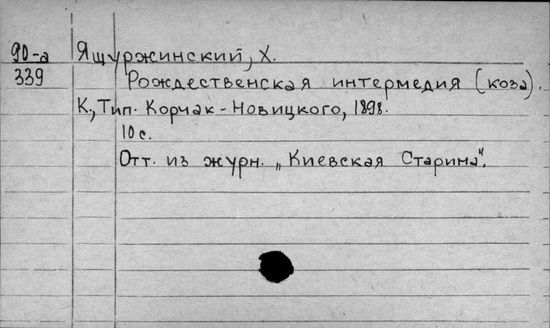 90-а Ящуржинский, Х.
339 Рождественская интермедия (коза).
К., Тип. Корчак-Новицкого, 1898.
10 с.
Отт. из журн. „Киевская Старина".